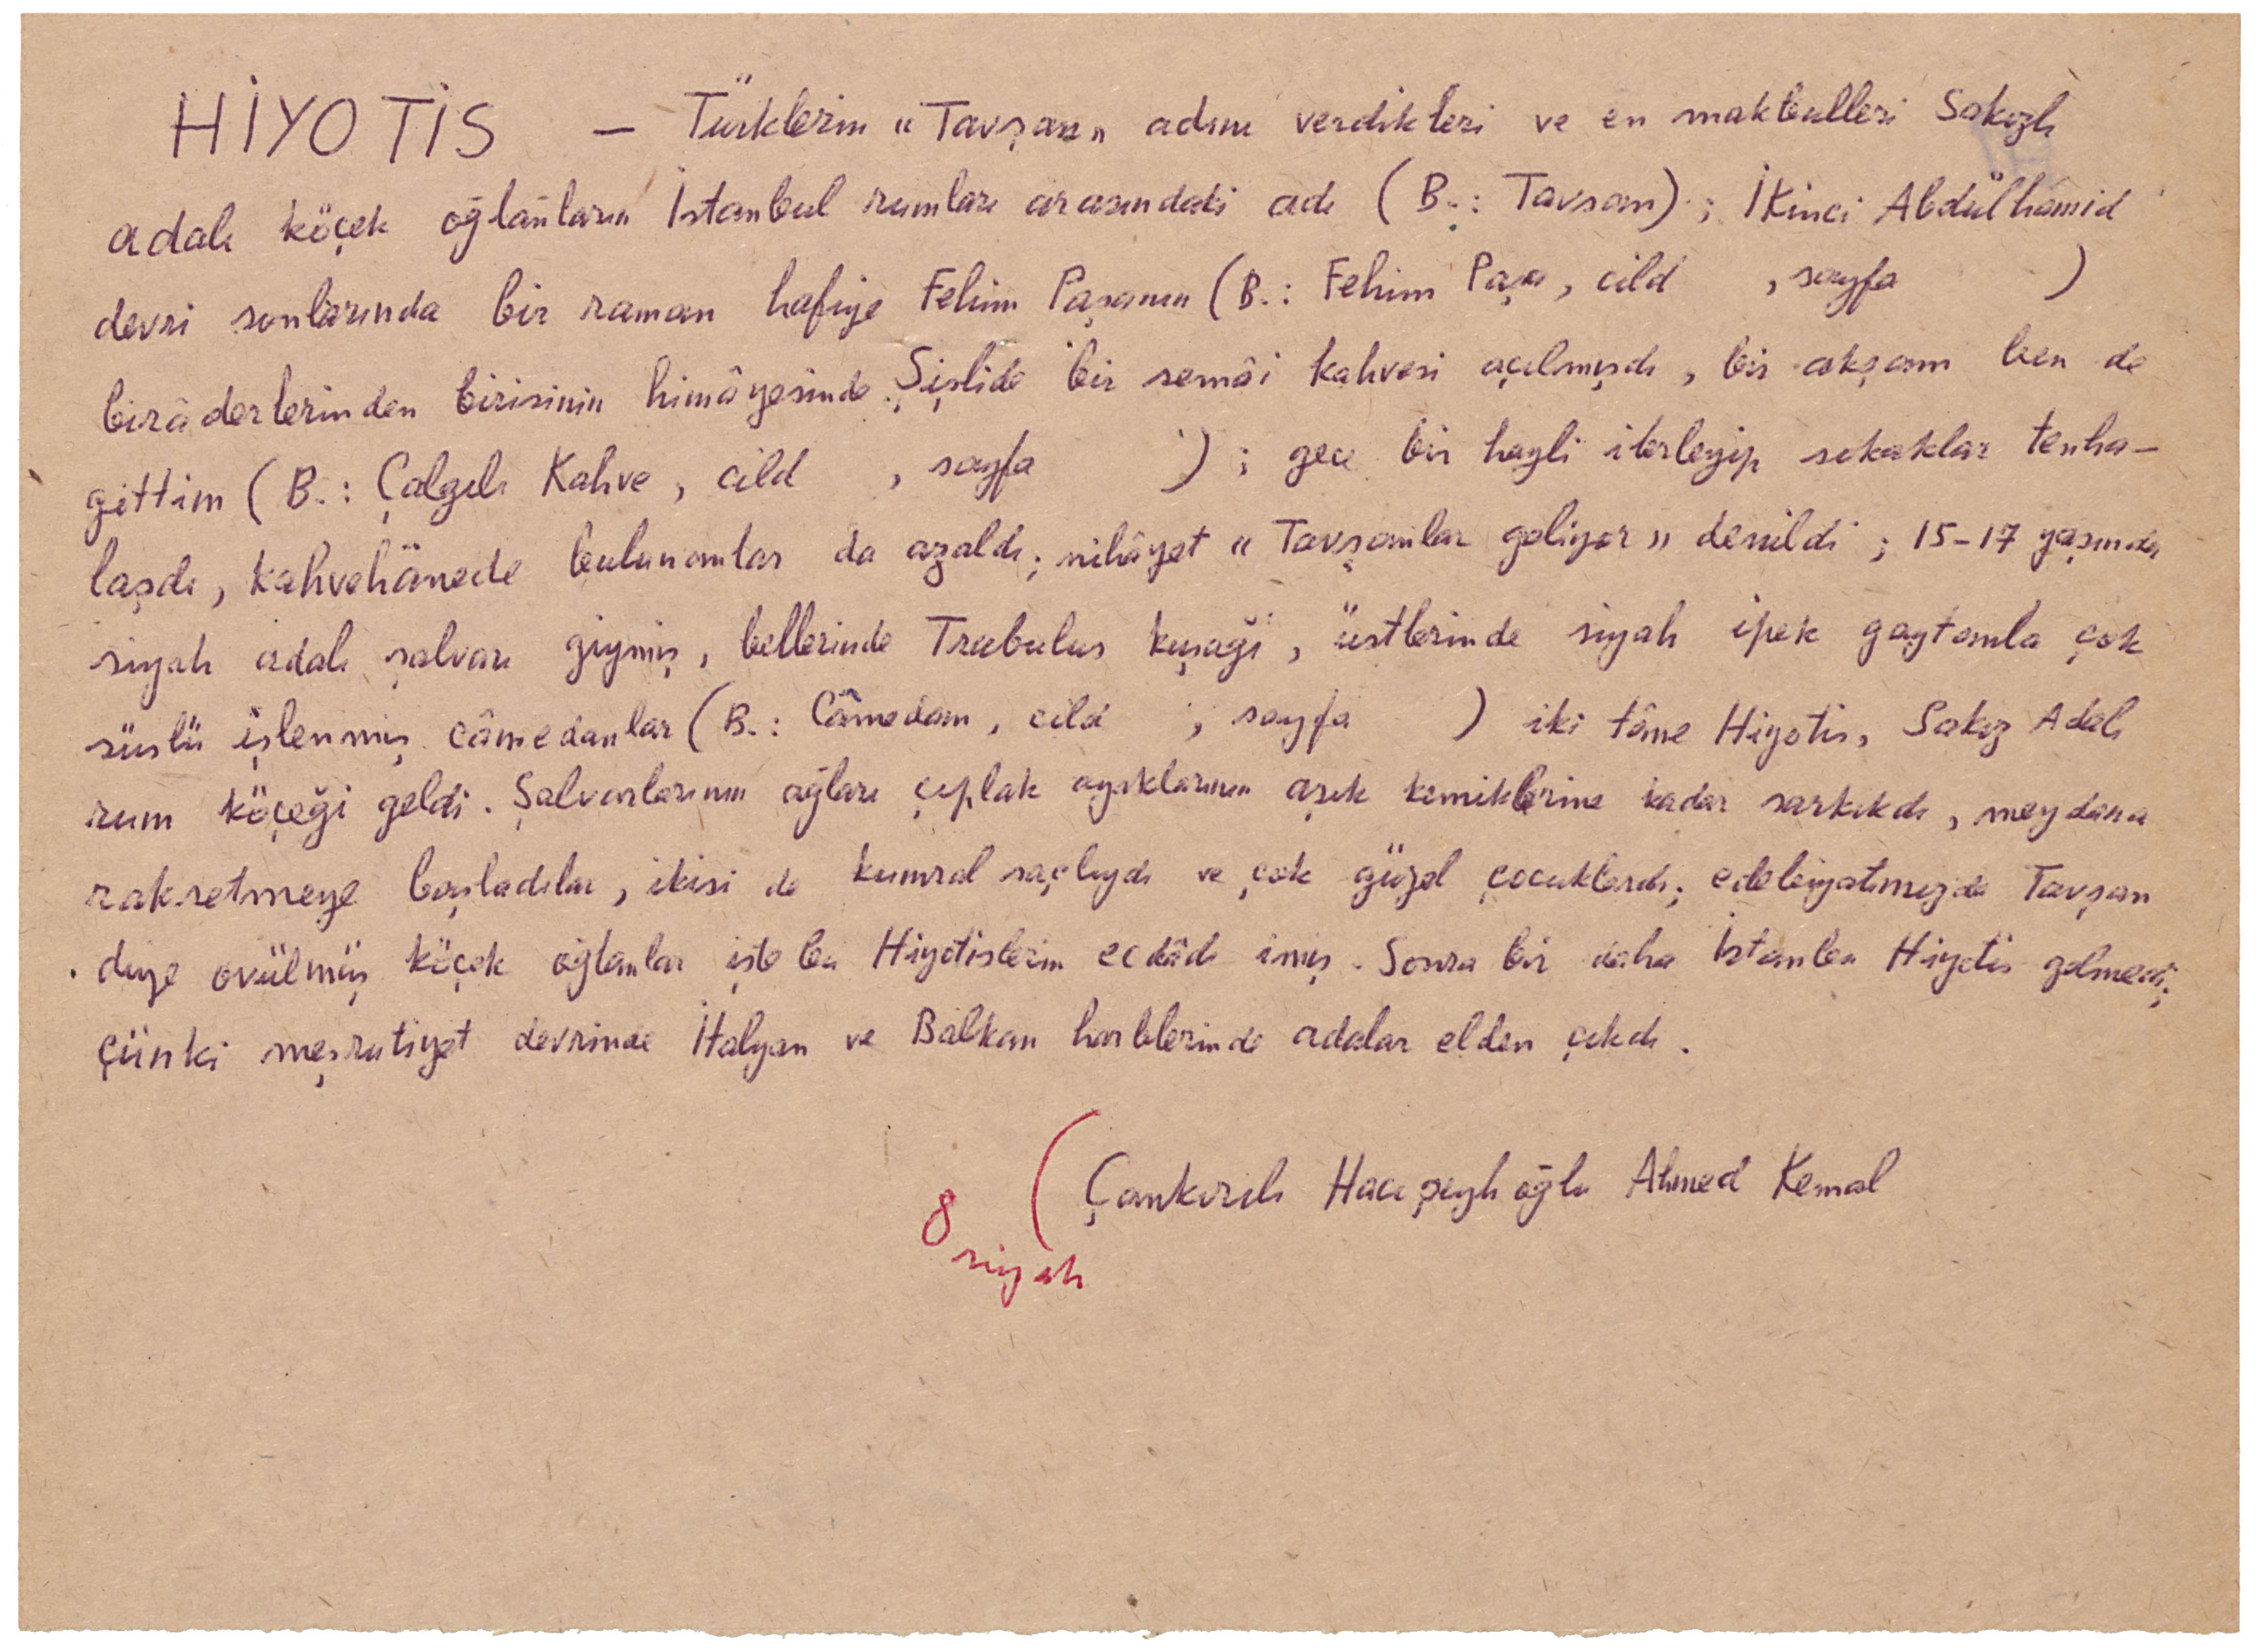 HİYOTİS — Türklerin "Tavşan" adını verdikleri ve en makbulleri Sakızlı
adalı köçek oğlanların İstanbul rumları arasındaki adı (B.: Tavşan); İkinci Abdülhamid
devri sonlarında bir zaman hafiye Fehim Paşanın (B.: Fehim Paşa, cild , sayfa )
birâderlerinden birisinin himâyesinde Şişlide bir semâi kahvesi açılmışdı, bir akşam ben de
gittim (B.: Çalgılı Kahve, cild , sayfa ); gece bir hayli ilerleyip sokaklar tenha-
laşdı, kahvehânede bulunanlar da azaldı; nihâyet "Tavşanlar geliyor" denildi; 15-17 yaşında
siyah adalı şalvarı giymiş, bellerinde Trabulus kuşağı, üstlerinde siyah ipek gaytanla çok
süslü işlenmiş câmedanlar (B.: Câmedan, cild , sayfa ) iki tâne Hiyotis, Sakız Adalı
rum köçeği geldi. Şalvarlarının ağları çıplak ayaklarının aşık kemiklerine kadar sarkıkdı, meydana
raksetmeye başladılar, ikisi de kumral saçlıydı ve çok güzel çocuklardı; edebiyatımızda Tavşan
diye övülmüş köçek oğlanlar işte bu Hiyotislerin ecdâdı imiş. Sonra bir daha İstanbula Hiyotis gelmedi;
çünki meşrutiyet devrinde İtalyan ve Balkan harblerinde adalar elden çıkdı.
(Çankırılı Hacışeyhoğlu Ahmed Kemal
8 siyah